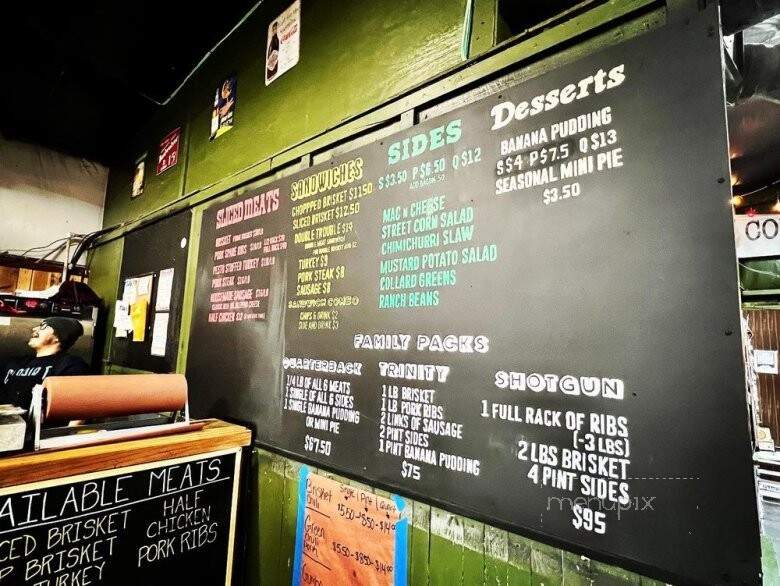 SLICED MEATS
PORK SPARE RIBS
PESTO STUFFED TURKEY
PORK STEAK
SAUSAGE
HALF CHICKEN
SANDWICHES
CHOPPPED BRISKET $11.50
SLICED BRISKET $12.50
DOUBLE TROUBLE $14
TURKEY $9
PORK STEAK $8
SAUSAGE $8
SANDWICH COMBO
CHIPS & DRINK $2
SIDE AND DRINK $5
SIDES
S $3.50 P $6.50 Q $12
MAC N CHEESE
STREET CORN SALAD
CHIMICHURRI SLAW
MUSTARD POTATO SALAD
COLLARD GREENS
RANCH BEANS
Desserts
BANANA PUDDING
S $4 P $7.5 Q $13
SEASONAL MINI PIE
$3.50
FAMILY PACKS
QUARTERBACK
1/4 LB OF ALL 6 MEATS
1 SINGLE OF ALL 6 SIDES
1 SINGLE BANANA PUDDING
OR MINI PIE
$67.50
TRINITY
1 LB BRISKET
1 LB PORK RIBS
2 LINKS OF SAUSAGE
2 PINT SIDES
1 PINT BANANA PUDDING
$75
SHOTGUN
1 FULL RACK OF RIBS
(~3 LBS)
2 LBS BRISKET
4 PINT SIDES
$95
menupix
AILABLE MEATS
CED BRISKET
P BRISKET
TURKEY
HALF
CHICKEN
PORK RIBS
Brisket Single | Pint | Quart
Chili $5.50-$8.50-$14.00
Green
Chili
Pork $5.50-$8.50-$14.00
Gumbo
CO